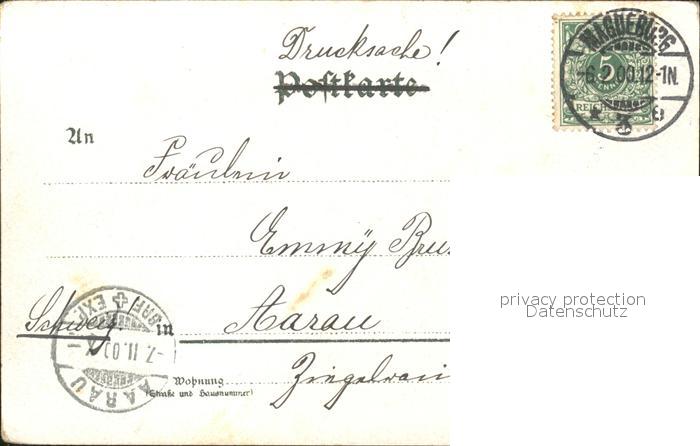 Drucksache!
Postkarte
MAGDEBURG
-6.2.00.12-1N.
* 3 e
5
PFENNIG
REICHSPOST
An
Fräulein
Emmÿ Bru
Schweiz in Aarau
AARAU
-7.II.00
BRF EXP
Wohnung
(Straße und Hausnummer)
privacy protection
Datenschutz